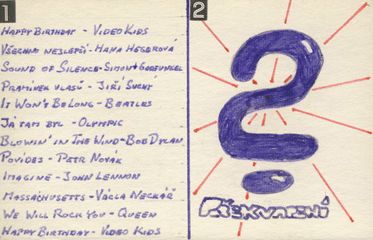 1
HAPPY BIRTHDAY - VIDEO KIDS
VŠECHNO NEJLEPŠÍ - HANA HEGEROVÁ
SOUND OF SILENCE - SIMON + GARFUNKEL
PRAMÍNEK VLASŮ - JIŘÍ SUCHÝ
IT WON'T BE LONG - BEATLES
JÁ TAM BYL - OLYMPIC
BLOWIN' IN THE WIND - BOB DYLAN
POVÍDEJ - PETR NOVÁK
IMAGINE - JOHN LENNON
MASSACHUSETTS - VÁCLAV NECKÁŘ
WE WILL ROCK YOU - QUEEN
HAPPY BIRTHDAY - VIDEO KIDS
2
?
PŘEKVAPENÍ